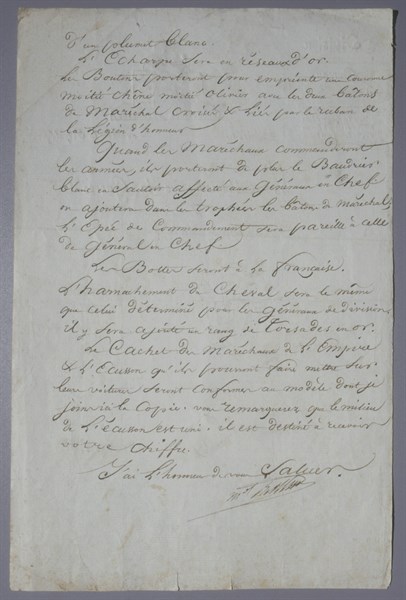 d'un plumet blanc.
L'Echarpe sera en réseaux d'or.
Les Boutons porteront pour empreinte une couronne
moitié chêne moitié olivier avec les deux bâtons
de Maréchal croisés & liés par le ruban de
la Légion d'honneur
Quand les Maréchaux commanderont
les armées, ils porteront de plus le Baudrier
blanc en Sautoir affecté aux Généraux en Chef
on ajoutera dans les trophées les bâtons de maréchal
L'Epée de Commandement sera pareille à celle
de général en Chef
Les Bottes seront à la française.
L'harnachement du Cheval sera le même
que celui déterminé pour les généraux de division,
il y sera ajouté un rang de torsades en or.
Le Cachet des Maréchaux de l'Empire
& l'Ecusson qu'ils pourront faire mettre sur
leurs voitures seront conformes au modèle dont je
joins ici la Copie. vous remarquerez que le milieu
de l'écusson est uni. il est destiné à recevoir
votre chiffre.
J'ai l'honneur de vous Saluer.